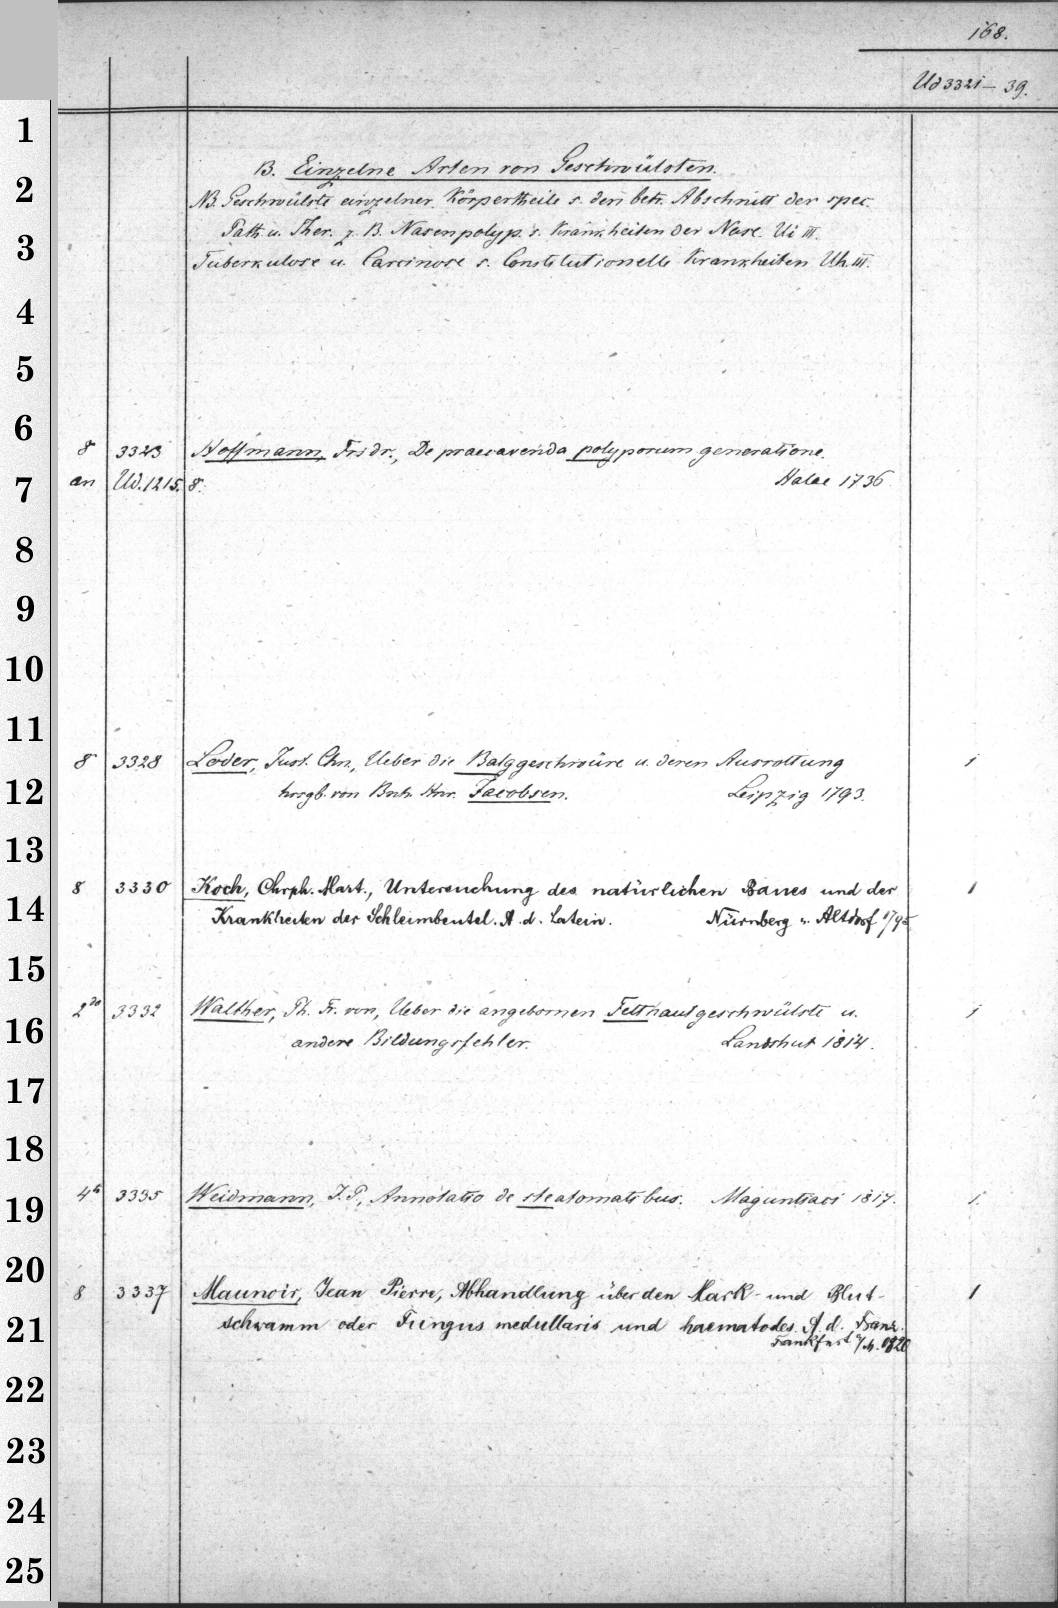 168.
Ud 3321–39.
B. Einzelne Arten von Geschwülsten.
NB. Geschwülste einzelner Körpertheile s. den betr. Abschnitt der spec.
Path. u. Ther. z. B. Nasenpolyp. s. Krankheiten der Nase. Ui III.
Tuberkulose u. Carcinose s. Constitutionelle Krankheiten Uh. III.
8 3323 Hoffmann, Fridr., De praecavenda polyporum generatione.
an Ud. 1215. 8. Halae 1736
8 3328 Loder, Just. Chn., Ueber die Balggeschwüre u. deren Ausrottung 1
hrsgb. von Hnr. Jacobsen. Leipzig 1793.
8 3330 Koch, Chrph. Mart., Untersuchung des natürlichen Baues und der 1
Krankheiten der Schleimbeutel. A. d. Latein. Nürnberg u. Altdorf 1795
2do 3332 Walther, Ph. Fr. von, Ueber die angebornen Fetthautgeschwülste u. 1
andere Bildungsfehler. Landshut 1814.
4to 3335 Weidmann, J. P., Annotatio de steatomatibus. Maguntiaci 1817. 1.
8 3337 Maunoir, Jean Pierre, Abhandlung über den Mark- und Blut- 1
schwamm oder Fungus medullaris und haematodes. A. d. Franz.
Frankfurt a/M. 1820
1
2
3
4
5
6
7
8
9
10
11
12
13
14
15
16
17
18
19
20
21
22
23
24
25